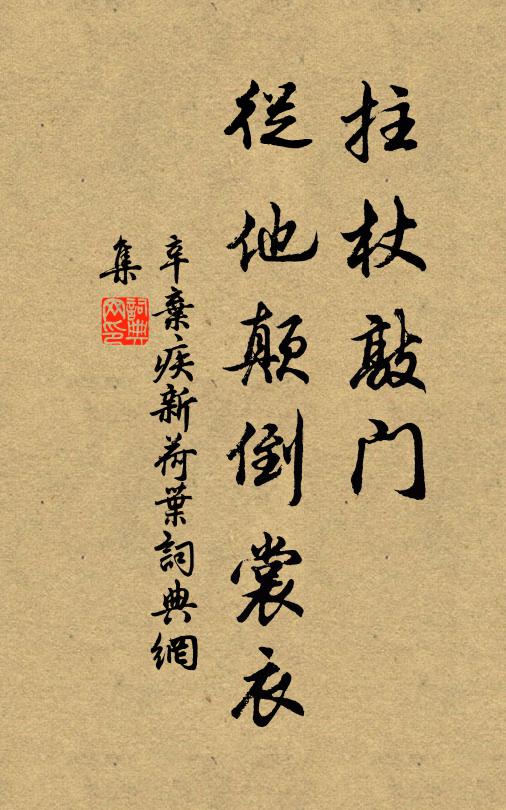 拄杖敲门
從他颠倒裳衣
辛棄疾新荷葉詞典網
集
詞典網印